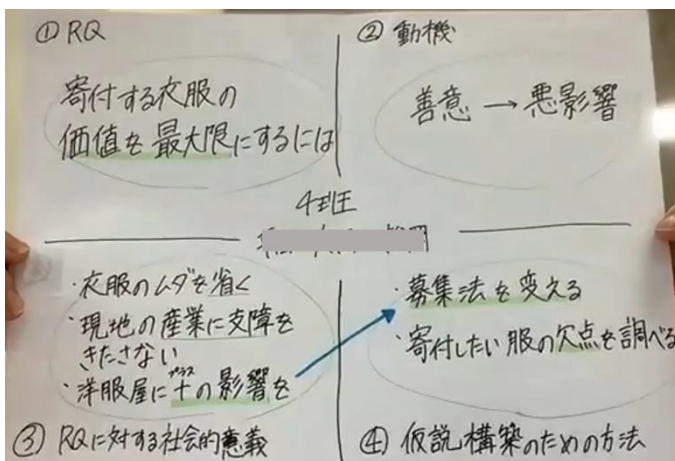 ① RQ
寄付する衣服の
価値を最大限にするには
② 動機
善意 → 悪影響
4班
・衣服のムダを省く
・現地の産業に支障を
きたさない
・洋服屋に十の影響を
プラス
③ RQに対する社会的意義
・募集法を変える
・寄付したい服の欠点を調べる
④ 仮説構築のための方法